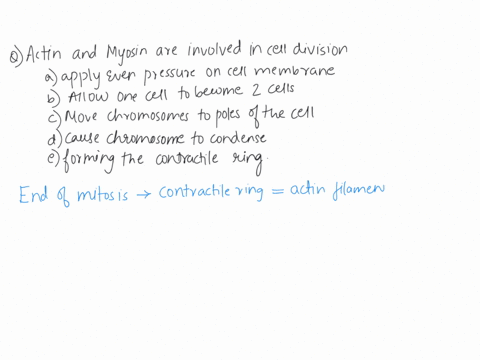 Q) Actin and Myosin are involved in cell division
a) apply even pressure on cell membrane
b) Allow one cell to become 2 cells
c) Move chromosomes to poles of the cell
d) cause chromosome to condense
e) forming the contractile ring.
End of mitosis → contractile ring = actin filamen